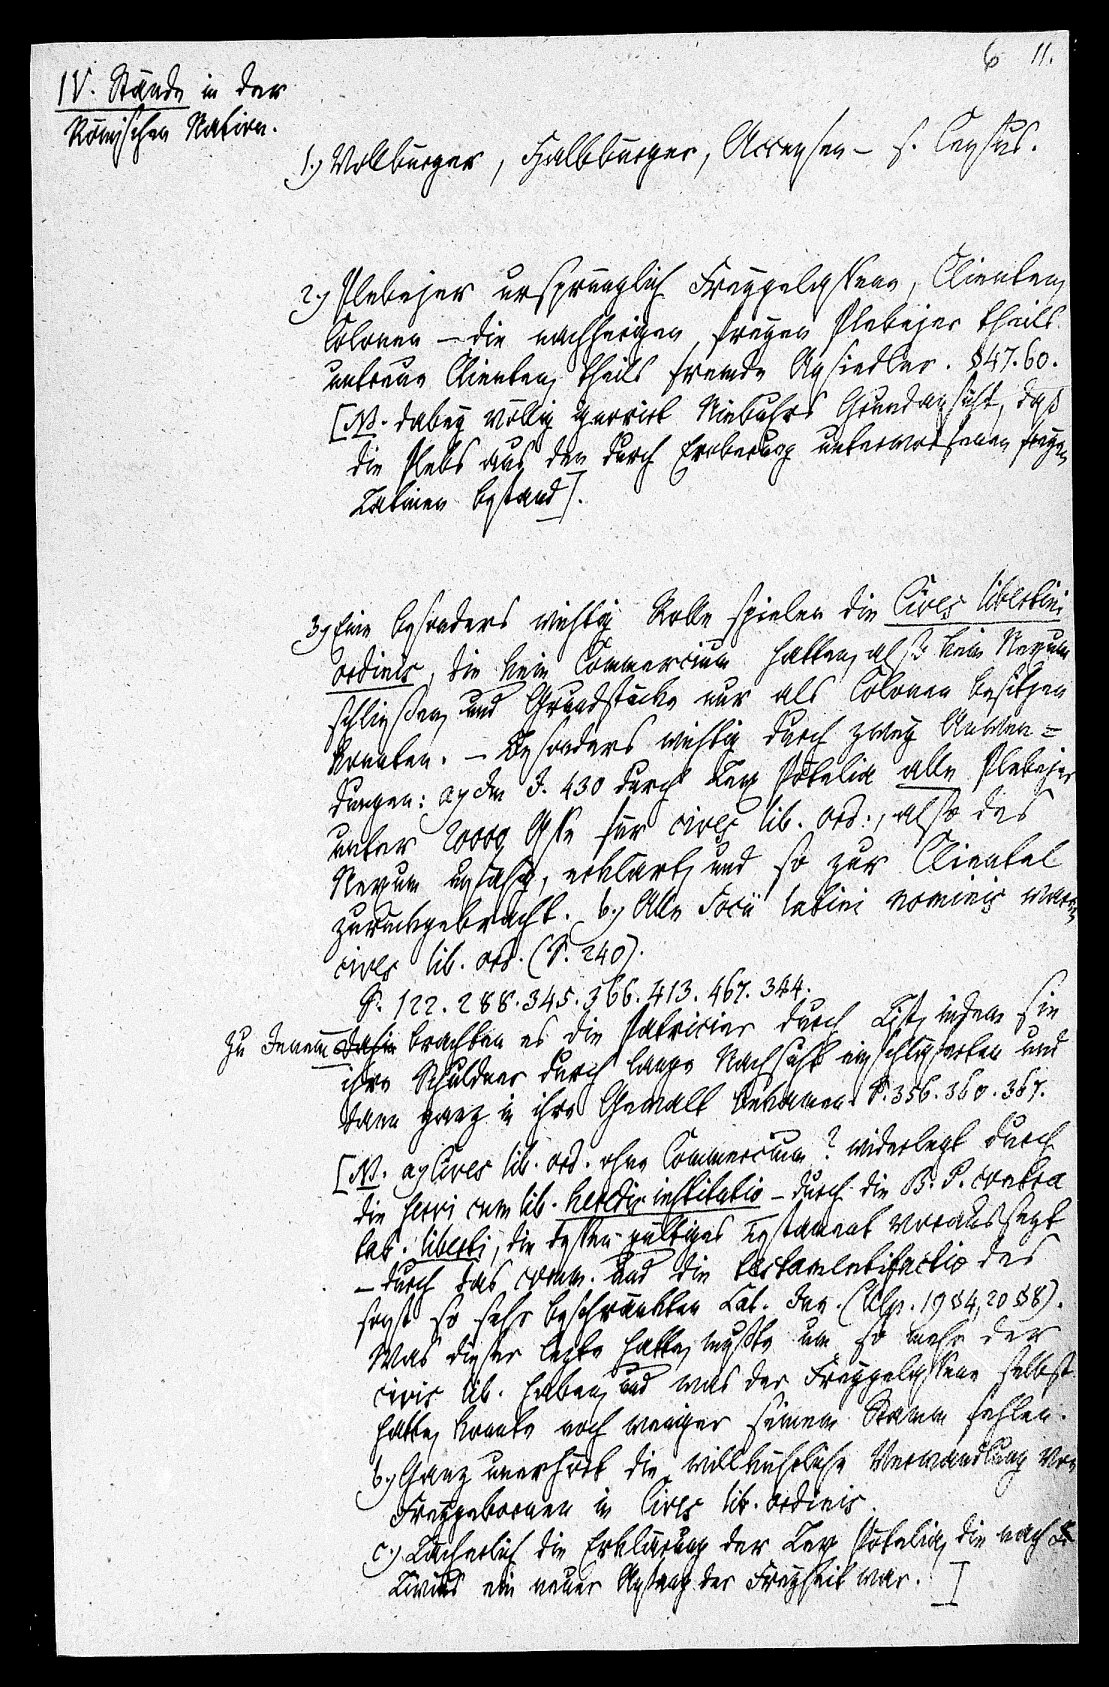 6 11.
IV. Stände in der
Römischen Nation.
1.) Vollbürger, Halbbürger, Accensen – s. Census.
2.) Plebejer ursprünglich Freygelassene, Clienten,
Colonen – die nachherigen freyen Plebejer theils
untreue Clienten, theils fremde Ansiedler. S 47. 60.
[NB. dabey völlig ignorirt Niebuhrs Grundansicht, daß
die Plebs aus den durch Eroberung unterworfenen freyen
Latinen bestand].
3.) Eine besonders wichtig Rolle spielen die Cives libertini
ordinis, die kein Commercium hatten, also kein Nexum
schließen, und Grundstücke nur als Colonen besitzen
konnten. – Besonders wichtig durch zwey Anwen=
dungen: a) Im J. 430 durch Lex Pötelia alle Plebejer
unter 20000 Asse für cives lib. ord., also des
Nexum unfähig, erklärt, und so zur Clientel
zurückgebracht. b.) Alle Socii latini nominis waren
cives lib. ord. (S. 240).
S. 122. 288. 345. 366. 413. 467. 344.
Zu Jenem brachten es die Patricier durch List, indem sie
ihre Schuldner durch lange Nachsicht einschläferten und
dann ganz in ihre Gewalt bekamen. S. 356. 360. 367.
[NB. a) Cives lib. ord. ohne Commercium? widerlegt durch
die servi cum lib. heredis institutio – durch die B. P. contra
tab. liberti, die dessen gültiges Testament voraussezt
– durch das comm. und die testamentifactio des
sonst so sehr beschränkten Lat. Jun. (Ulp. 19 §4, 20 §8).
Was dieser lezte hatte, mußte um so mehr der
civis lib. haben, und was der Freygelassene selbst
hatte, konnte noch weniger seinem Stamm fehlen.
b.) Ganz unerhört die willkührliche Verwandlung von
Freygebornen in Cives lib. ordinis.
c.) Lächerlich die Erklärung der Lex Pötelia, die nach
Livius ein neuer Anfang der Freyheit war. ]